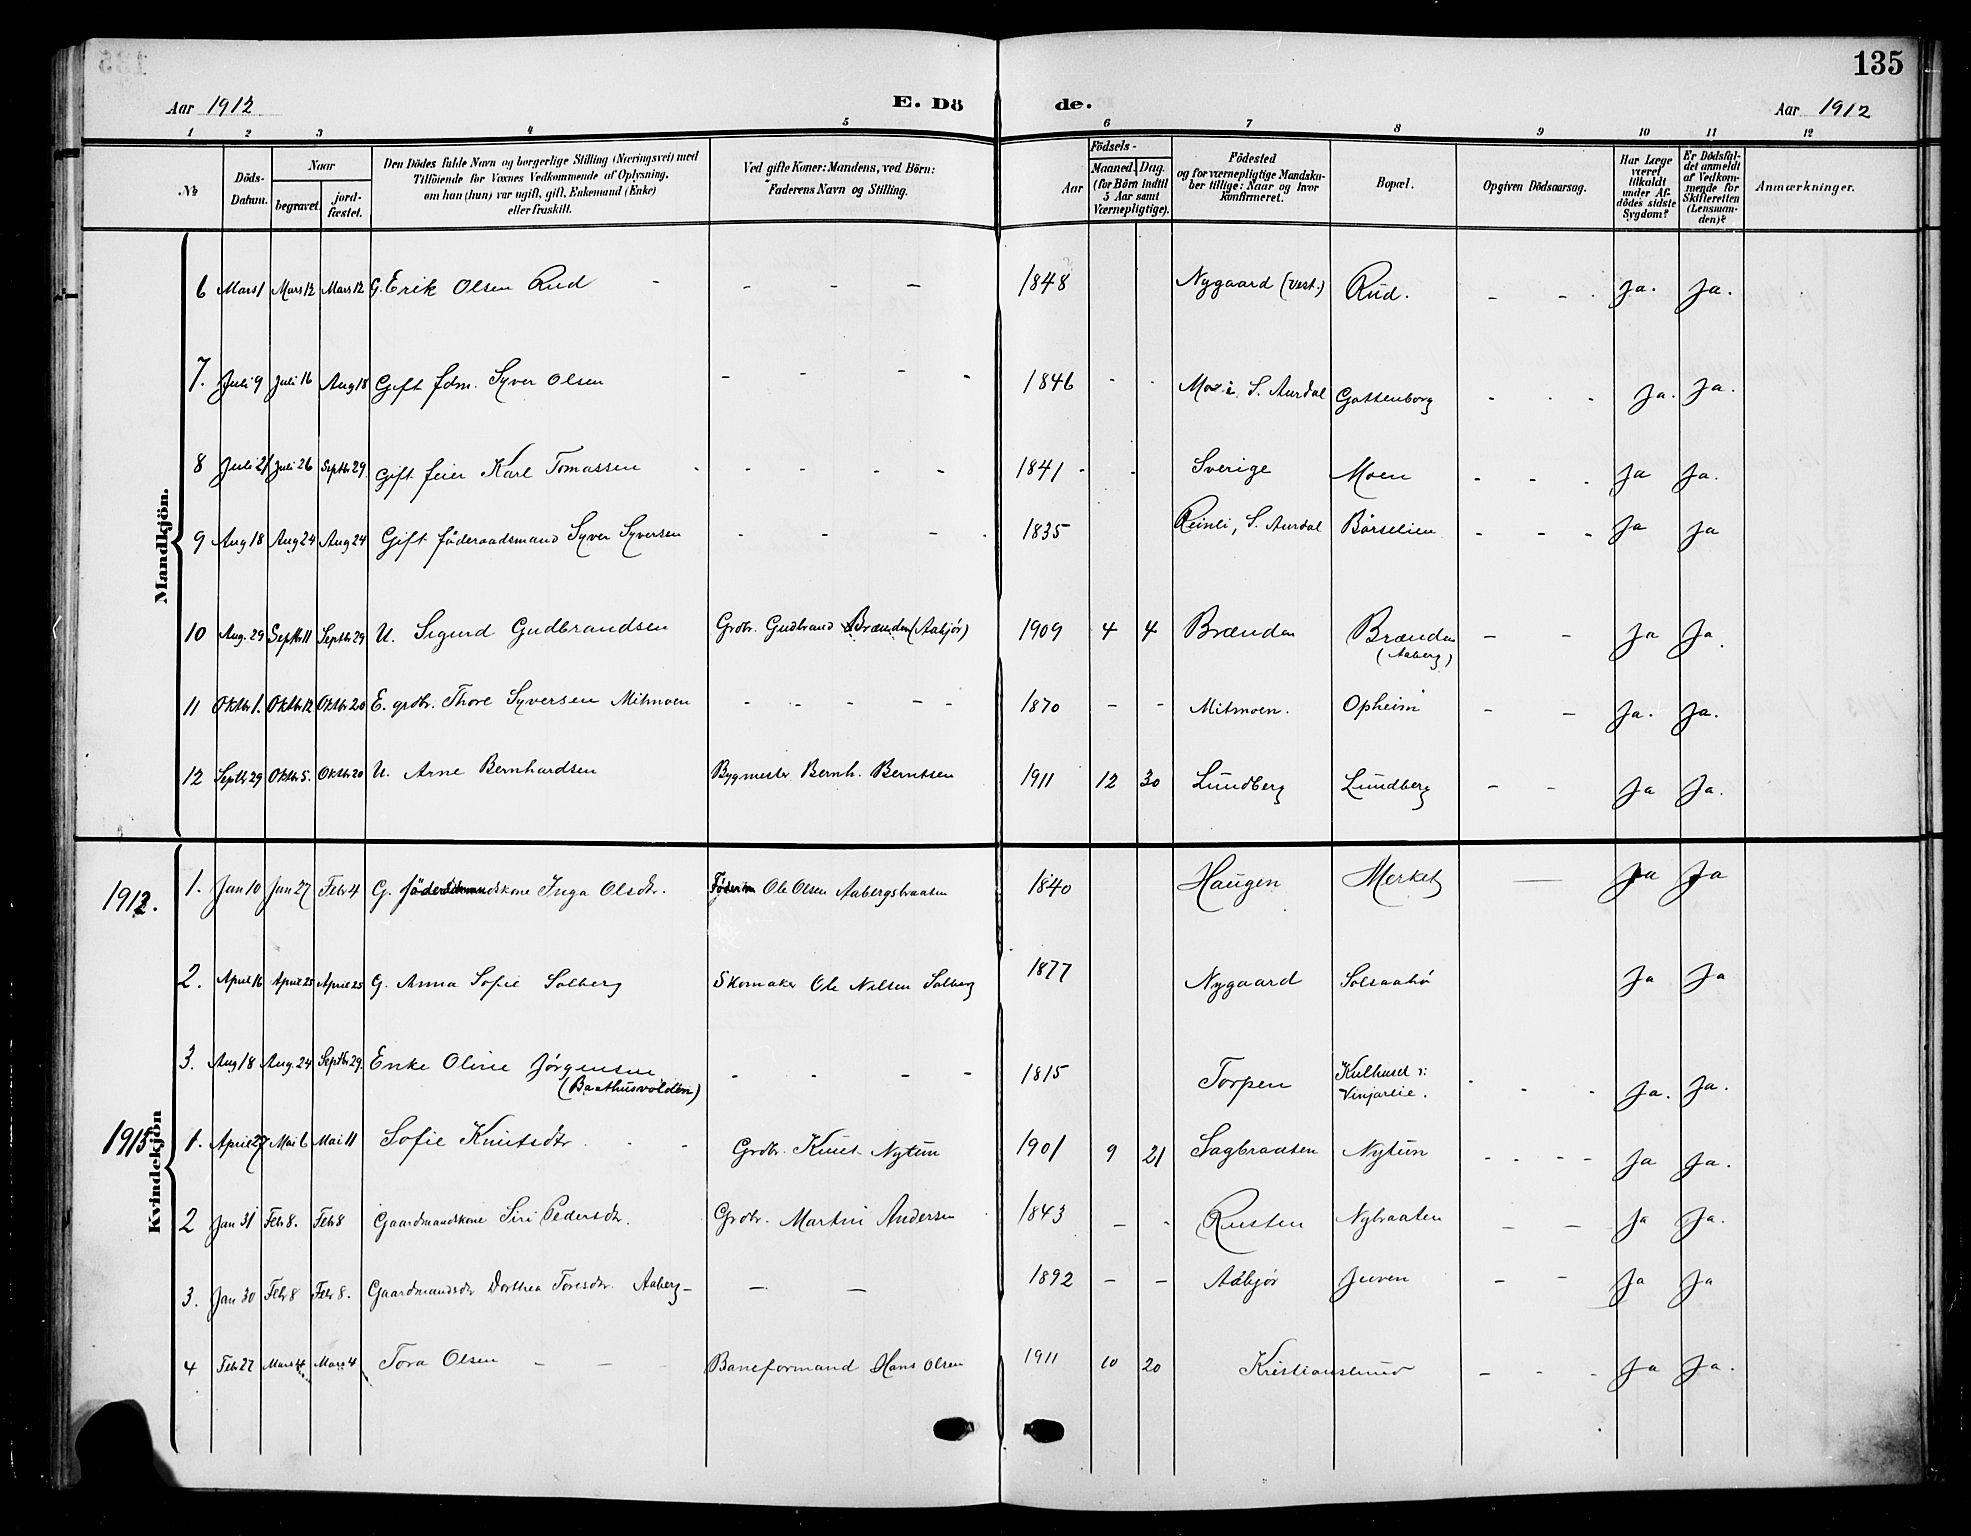 135
Aar 1912 E. Dö de. Aar 1912
1 2 3 4 5 6 7 8 9 10 11 12
№ Döds-Datum. Naar begravet. jordfæstet. Den Dödes fulde Navn og borgerlige Stilling (Næringsvei) med Tilföiende for Voxnes Vedkommende af Oplysning, om han (hun) var ugift, gift, Enkemand (Enke) eller fraskilt. Ved gifte Koner: Mandens, ved Börn: Faderens Navn og Stilling. Födsels- Aar Maaned. Dag. (for Börn indtil 5 Aar samt Værnepligtige). Födested og for værnepligtige Mandskaber tillige: Naar og hvor konfirmeret. Bopæl. Opgiven Dödsaarsag. Har Læge været tilkaldt under Afdödes sidste Sygdom? Er Dödsfaldet anmeldt af Vedkommende for Skifteretten (Lensmanden)? Anmærkninger.
Mandkjön.
6 Mars 1 Mars 12 Mars 12 G. Erik Olsen Rud - - - - 1848 Nygaard (vest.) Rud. - - - Ja. Ja.
7. Juli 9 Juli 16 Aug 18 Gift fdm. Syver Olsen - - - - 1846 - - Mo i S. Aurdal Gottenborg - - - Ja. Ja.
8 Juli 21 Juli 26 Septbr 29. Gift feier Karl Tomassen - - - - - 1841 - - Sverige Moen - - - Ja Ja.
9 Aug 18 Aug 24 Aug 24 Gift föderaadsmand Syver Syversen - - - - 1835 Reinli, S. Aurdal Börselien - - - Ja Ja
10 Aug. 29 Septbr 11 Septbr 29 U. Sigurd Gudbrandsen Grdbr. Gudbrand Brænden (Aabjør) 1909 4 4 Brænden Brænden (Aaberg) - - Ja Ja.
11 Oktbr 1. Oktbr 12 Oktbr 20 E. grdbr. Thore Syversen Mitmoen - - - - - 1870 - - Mitmoen. Opheim - - Ja. Ja.
12 Septbr 29 Oktbr 5. Oktbr 20 U. Arne Bernhardsen Bygmester Bernh. Berntsen 1911 12 30 Lundberg Lundberg - - Ja Ja.
Kvindekjön
1912. 1. Jan 10 Jan 27 Febr 4 G. Inga Olsdtr. Ole Olsen Aabergsbraaten 1840 Haugen Merket — Ja Ja
2. April 16 April 25 April 25 G. Anna Sofie Solberg Skomaker Ole Nilsen Solberg 1877 Nygaard Solsaahö Ja Ja
3. Aug 18 Aug. 24 Septbr 29. Enke Oline Jørgensen (Baathusvolden) - - - - 1815 Torpen Kulhuset v: Vinjarlie. - - - Ja. Ja.
1915 1. April 27 Mai 6 Mai 11 Sofie Knutsdtr - - Grdbr. Knut Nytun 1901 9 21 Sagbraaten Nytun - - - - Ja Ja.
2 Jan 31 Feb 8. Feb 8 Gaardmandskone Siri Pedersdtr. Grdbr. Martin Andersen 1843 - - Rusten Nybraaten - - Ja Ja.
3. Jan 30 Feb 8 Feb 8. Gaardmandsdtr Dorthea Toresdtr. Aaberg - - - 1892 - - Aabjør Juven - - Ja Ja
4 Febr 27 Mars 4 Mars 4 Tora Olsen - - - Baneformand Hans Olsen 1911 10 20 Kristianslund - - - Ja Ja.